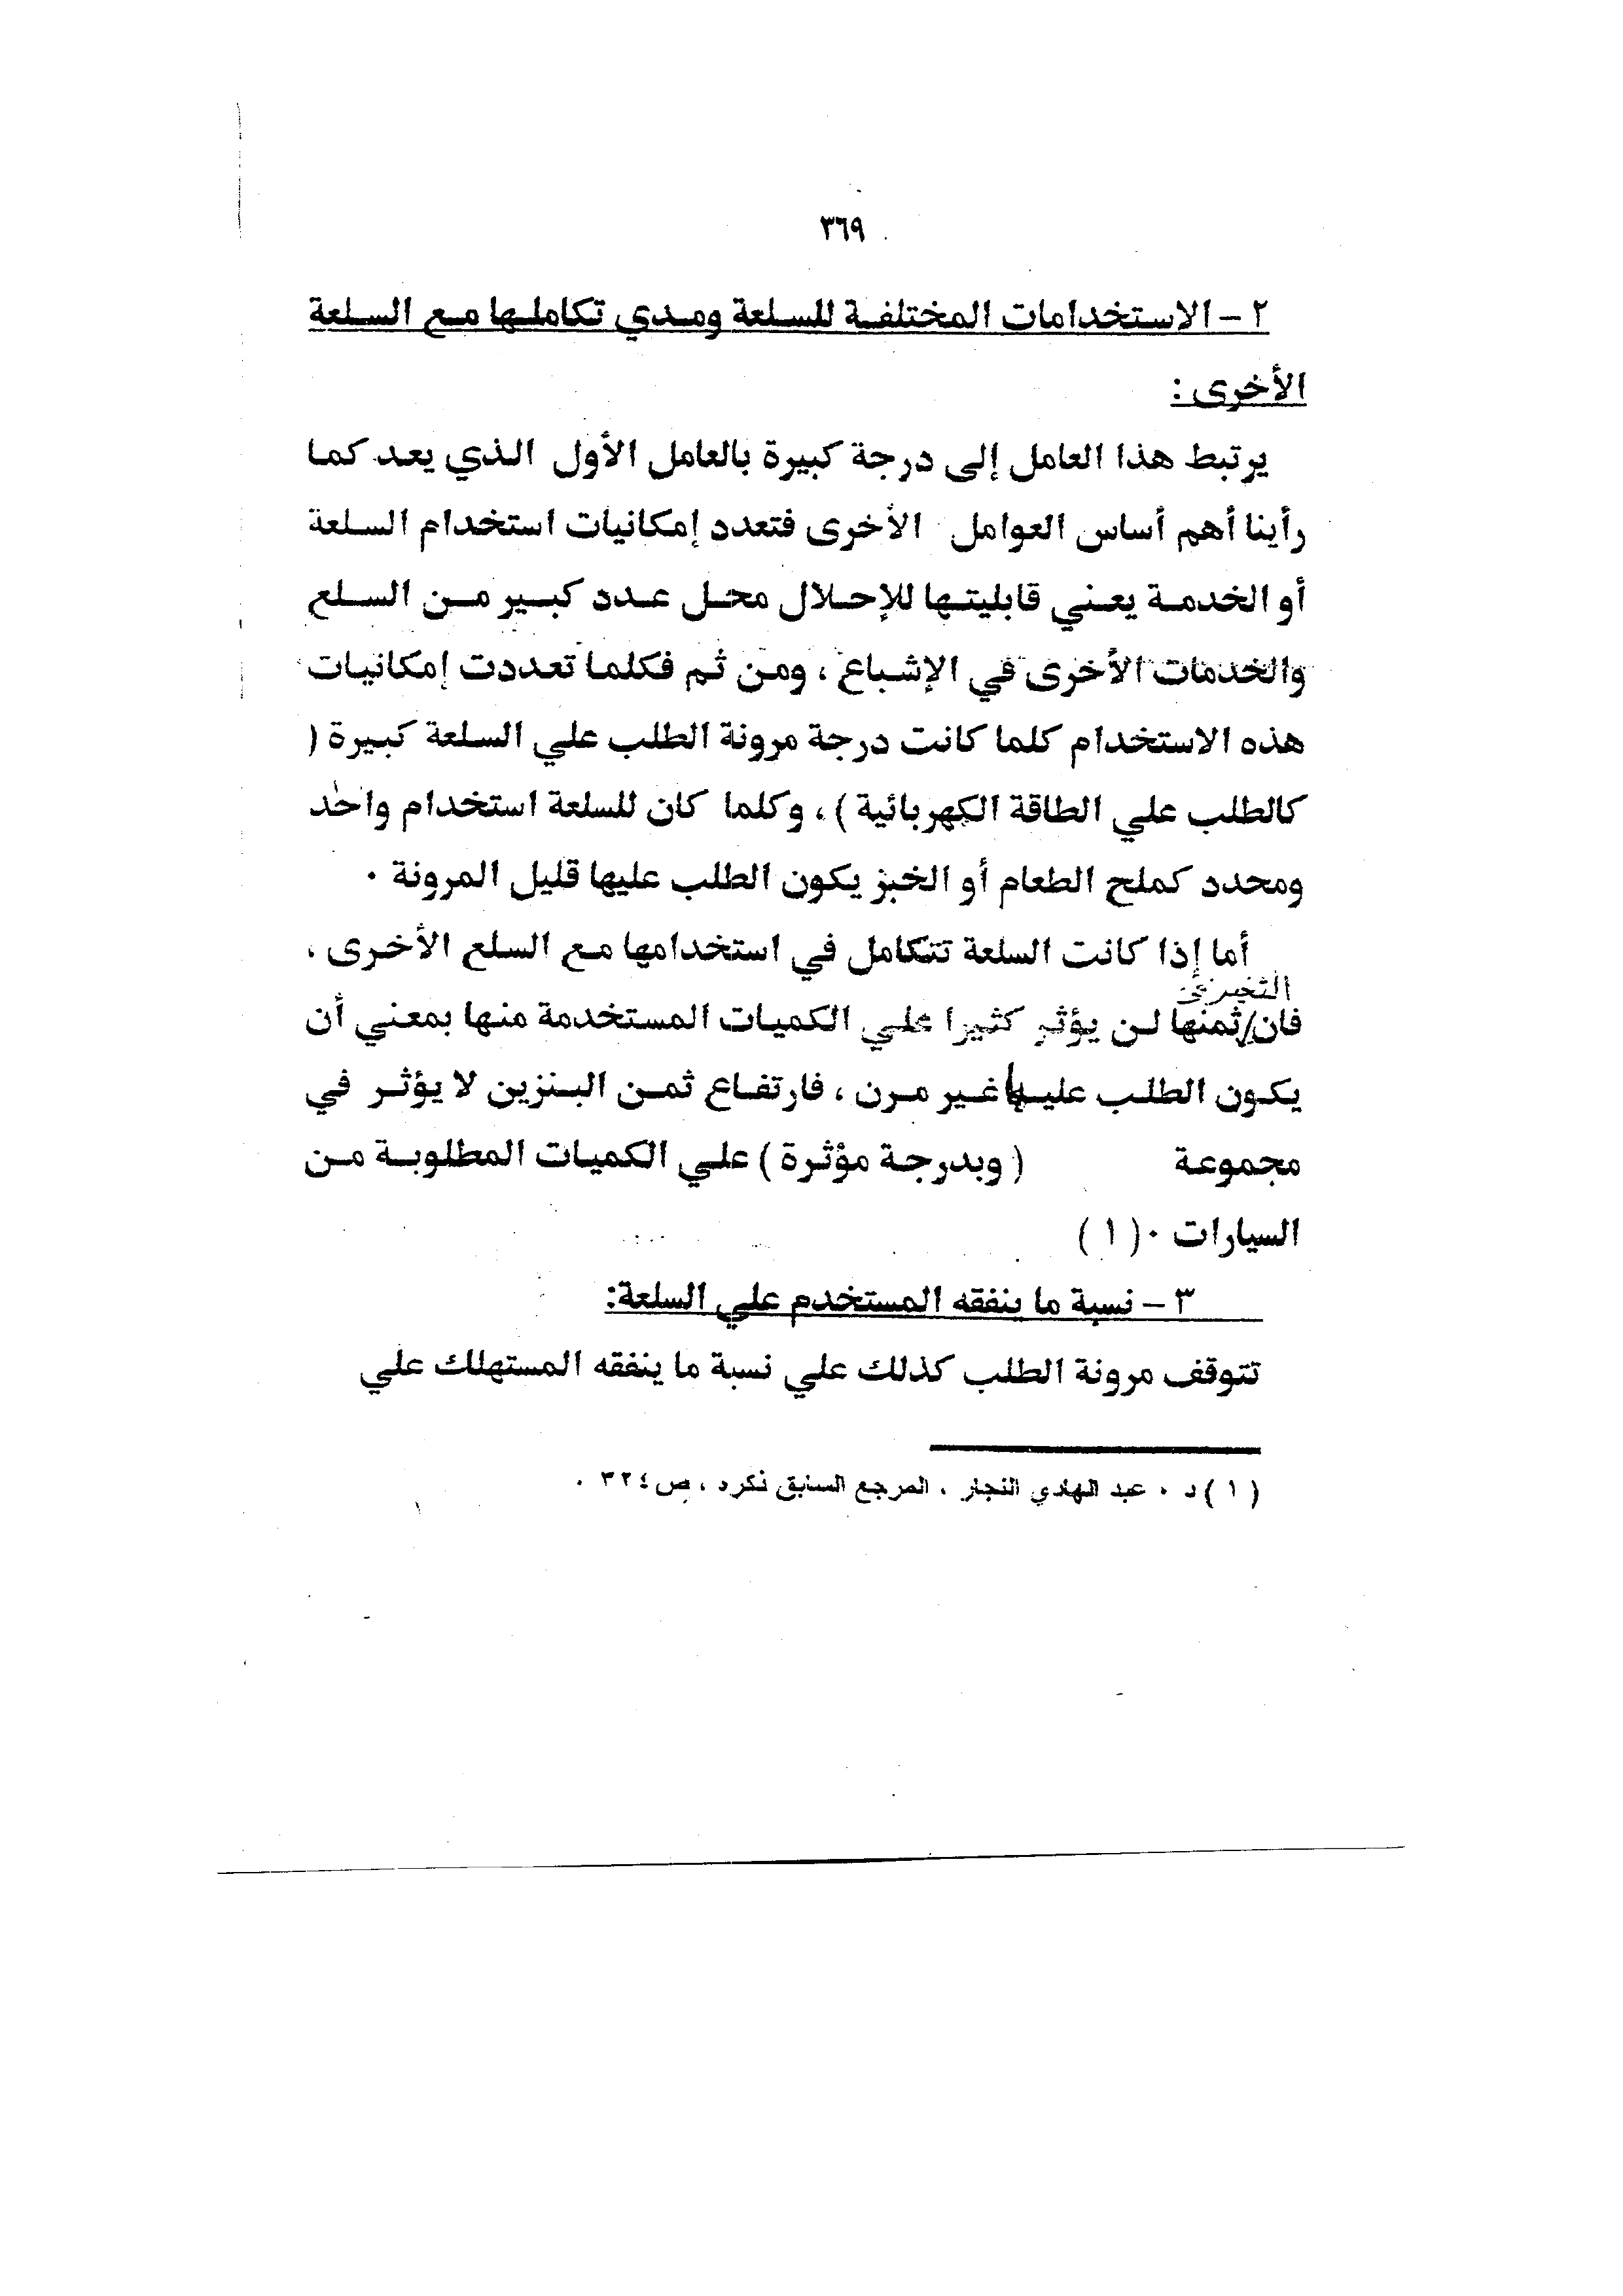 ٣٦٩
٢ – الاستخدامات المختلفة للسلعة ومدي تكاملها مع السلعة
الأخرى :
يرتبط هذا العامل إلى درجة كبيرة بالعامل الأول الذي يعد كما
رأينا أهم أساس العوامل الأخرى فتعدد إمكانيات استخدام السلعة
أو الخدمة يعني قابليتها للإحلال محل عدد كبير من السلع
والخدمات الأخرى في الإشباع ، ومن ثم فكلما تعددت إمكانيات
هذه الاستخدام كلما كانت درجة مرونة الطلب علي السلعة كبيرة (
كالطلب علي الطاقة الكهربائية ) ، وكلما كان للسلعة استخدام واحد
ومحدد كملح الطعام أو الخبز يكون الطلب عليها قليل المرونة ٠
أما إذا كانت السلعة تتكامل في استخدامها مع السلع الأخرى ،
فان ثمنها لن يؤثر كثيرا علي الكميات المستخدمة منها بمعني أن
يكون الطلب عليها غير مرن ، فارتفاع ثمن البنزين لا يؤثر في
مجموعة ( وبدرجة مؤثرة ) علي الكميات المطلوبة من
السيارات ٠( ١ )
٣ – نسبة ما ينفقه المستخدم علي السلعة:
تتوقف مرونة الطلب كذلك علي نسبة ما ينفقه المستهلك علي
( ١ ) د ٠ عبد الهادي النجار ، المرجع السابق ذكره ، ص ٣٢٤ ٠